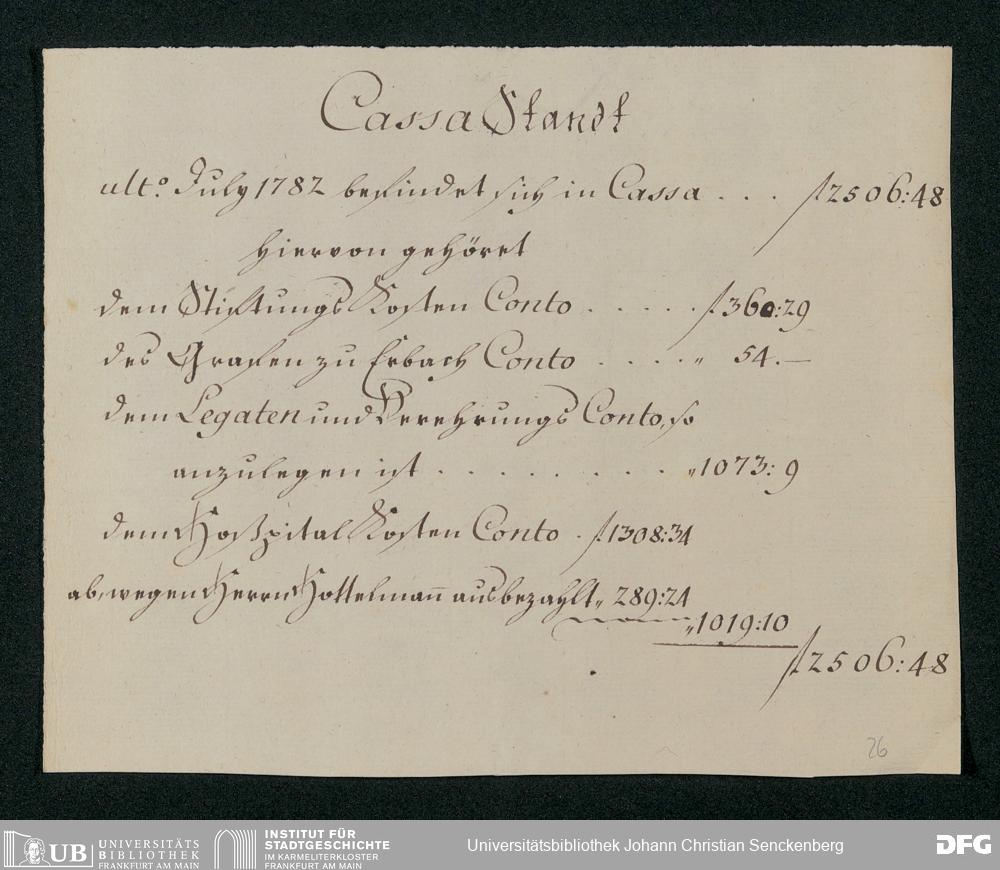 Cassa Standt
ulto July 1782 befindet sich in Cassa . . . f 2506:48
hiervon gehöret
dem Stiftungs Kosten Conto . . . . . f 360:29
des Grafen zu Erbach Conto . . . . „ 54.—
dem Legaten und Verehrungs Conto, so
anzulegen ist . . . . . . . . . „ 1073:9
dem Hospital Kosten Conto . f 1308:34
ab, wegen Herrn Hottelmañ ausbezahlt „ 289:24
„ 1019:10
f 2506:48
26
UB UNIVERSITÄTS BIBLIOTHEK FRANKFURT AM MAIN
INSTITUT FÜR STADTGESCHICHTE IM KARMELITERKLOSTER FRANKFURT AM MAIN
Universitätsbibliothek Johann Christian Senckenberg
DFG